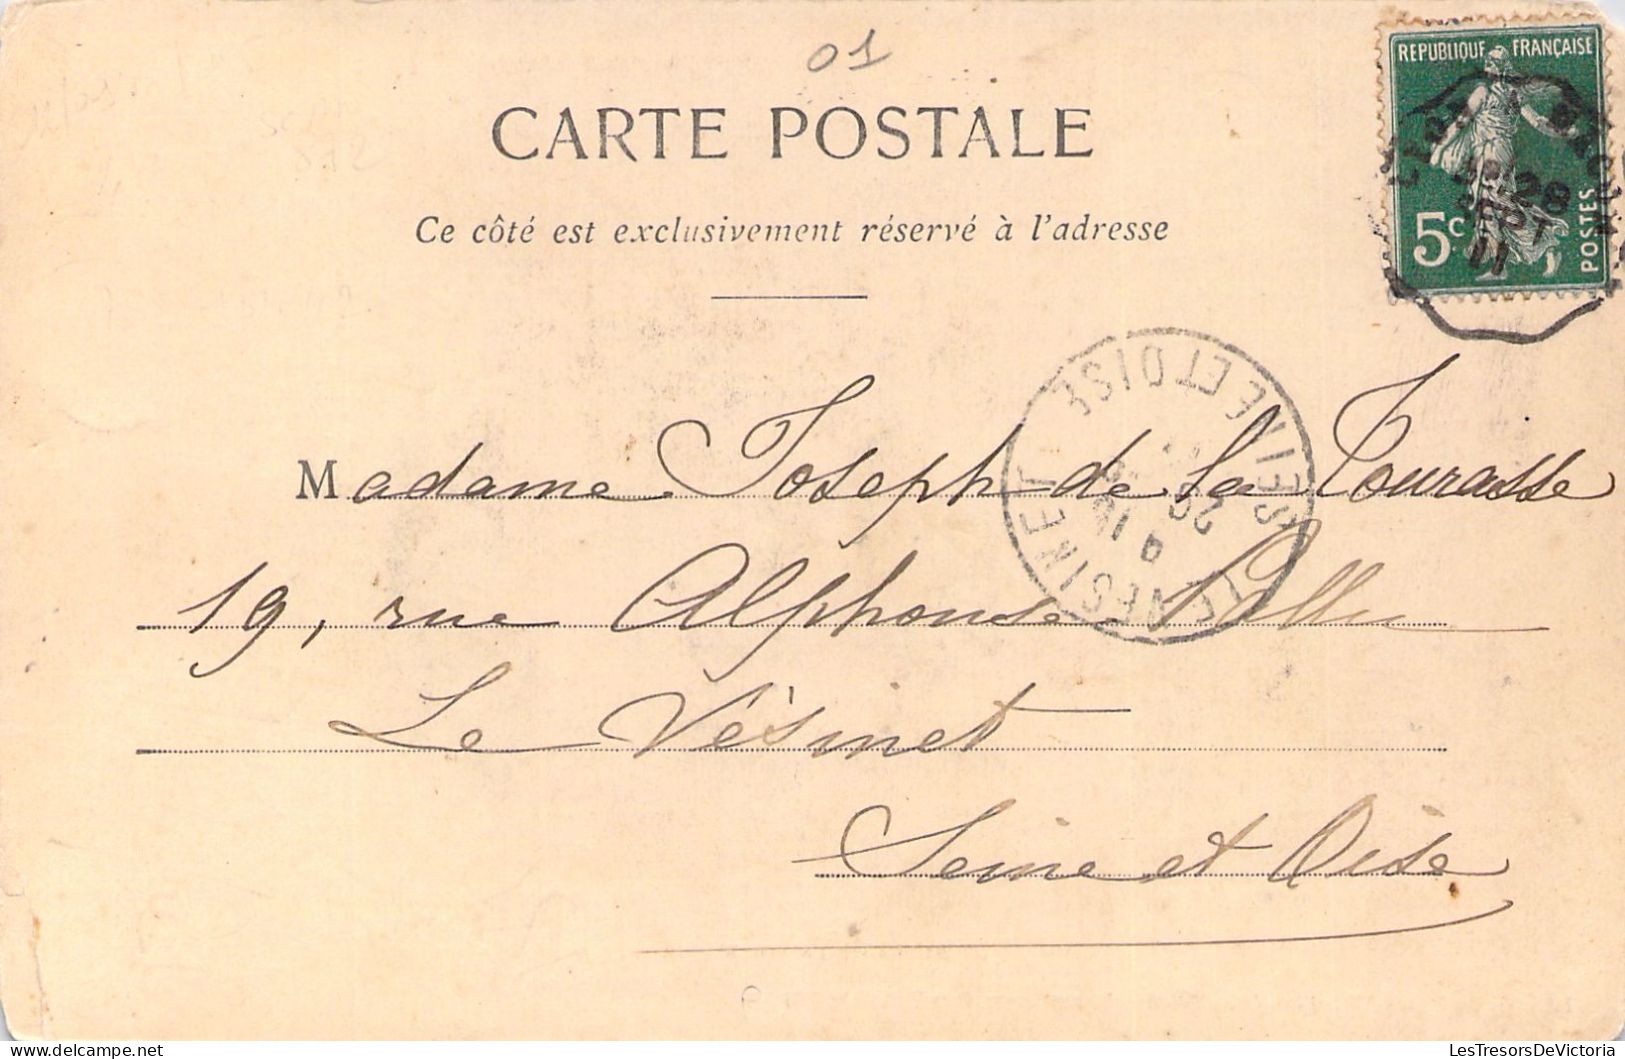 01
REPUBLIQUE FRANÇAISE
CARTE POSTALE
5c
POSTES
28
SEPT
11
Ce côté est exclusivement réservé à l'adresse
LE VESINET SEINE ET OISE
Madame Joseph de la Tourasse
19, rue Alphonse Pallu
Le Vésinet
Seine et Oise
LesTresorsDeVictoria